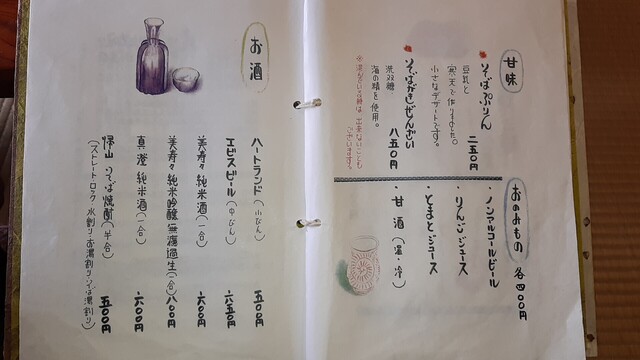 甘味
そばぷりん 二五〇円
豆乳と
寒天で作りました。
小さなデザートです。
そばがきぜんざい 八五〇円
洗双糖
海の精を使用。
おのみもの 各四〇〇円
・ノンアルコールビール
・りんごジュース
・とまとジュース
・甘酒（温・冷）
お酒
ハートランド（小びん） 五〇〇円
エビスビール（中びん） 六五〇円
美寿々 純米酒（一合） 六〇〇円
美寿々 純米吟醸 無濾過生（一合） 八〇〇円
真澄 純米酒（一合） 六〇〇円
帰山 そば焼酎（半合） 五〇〇円
（ストレート・ロック 水割り・お湯割り・そば湯割り）